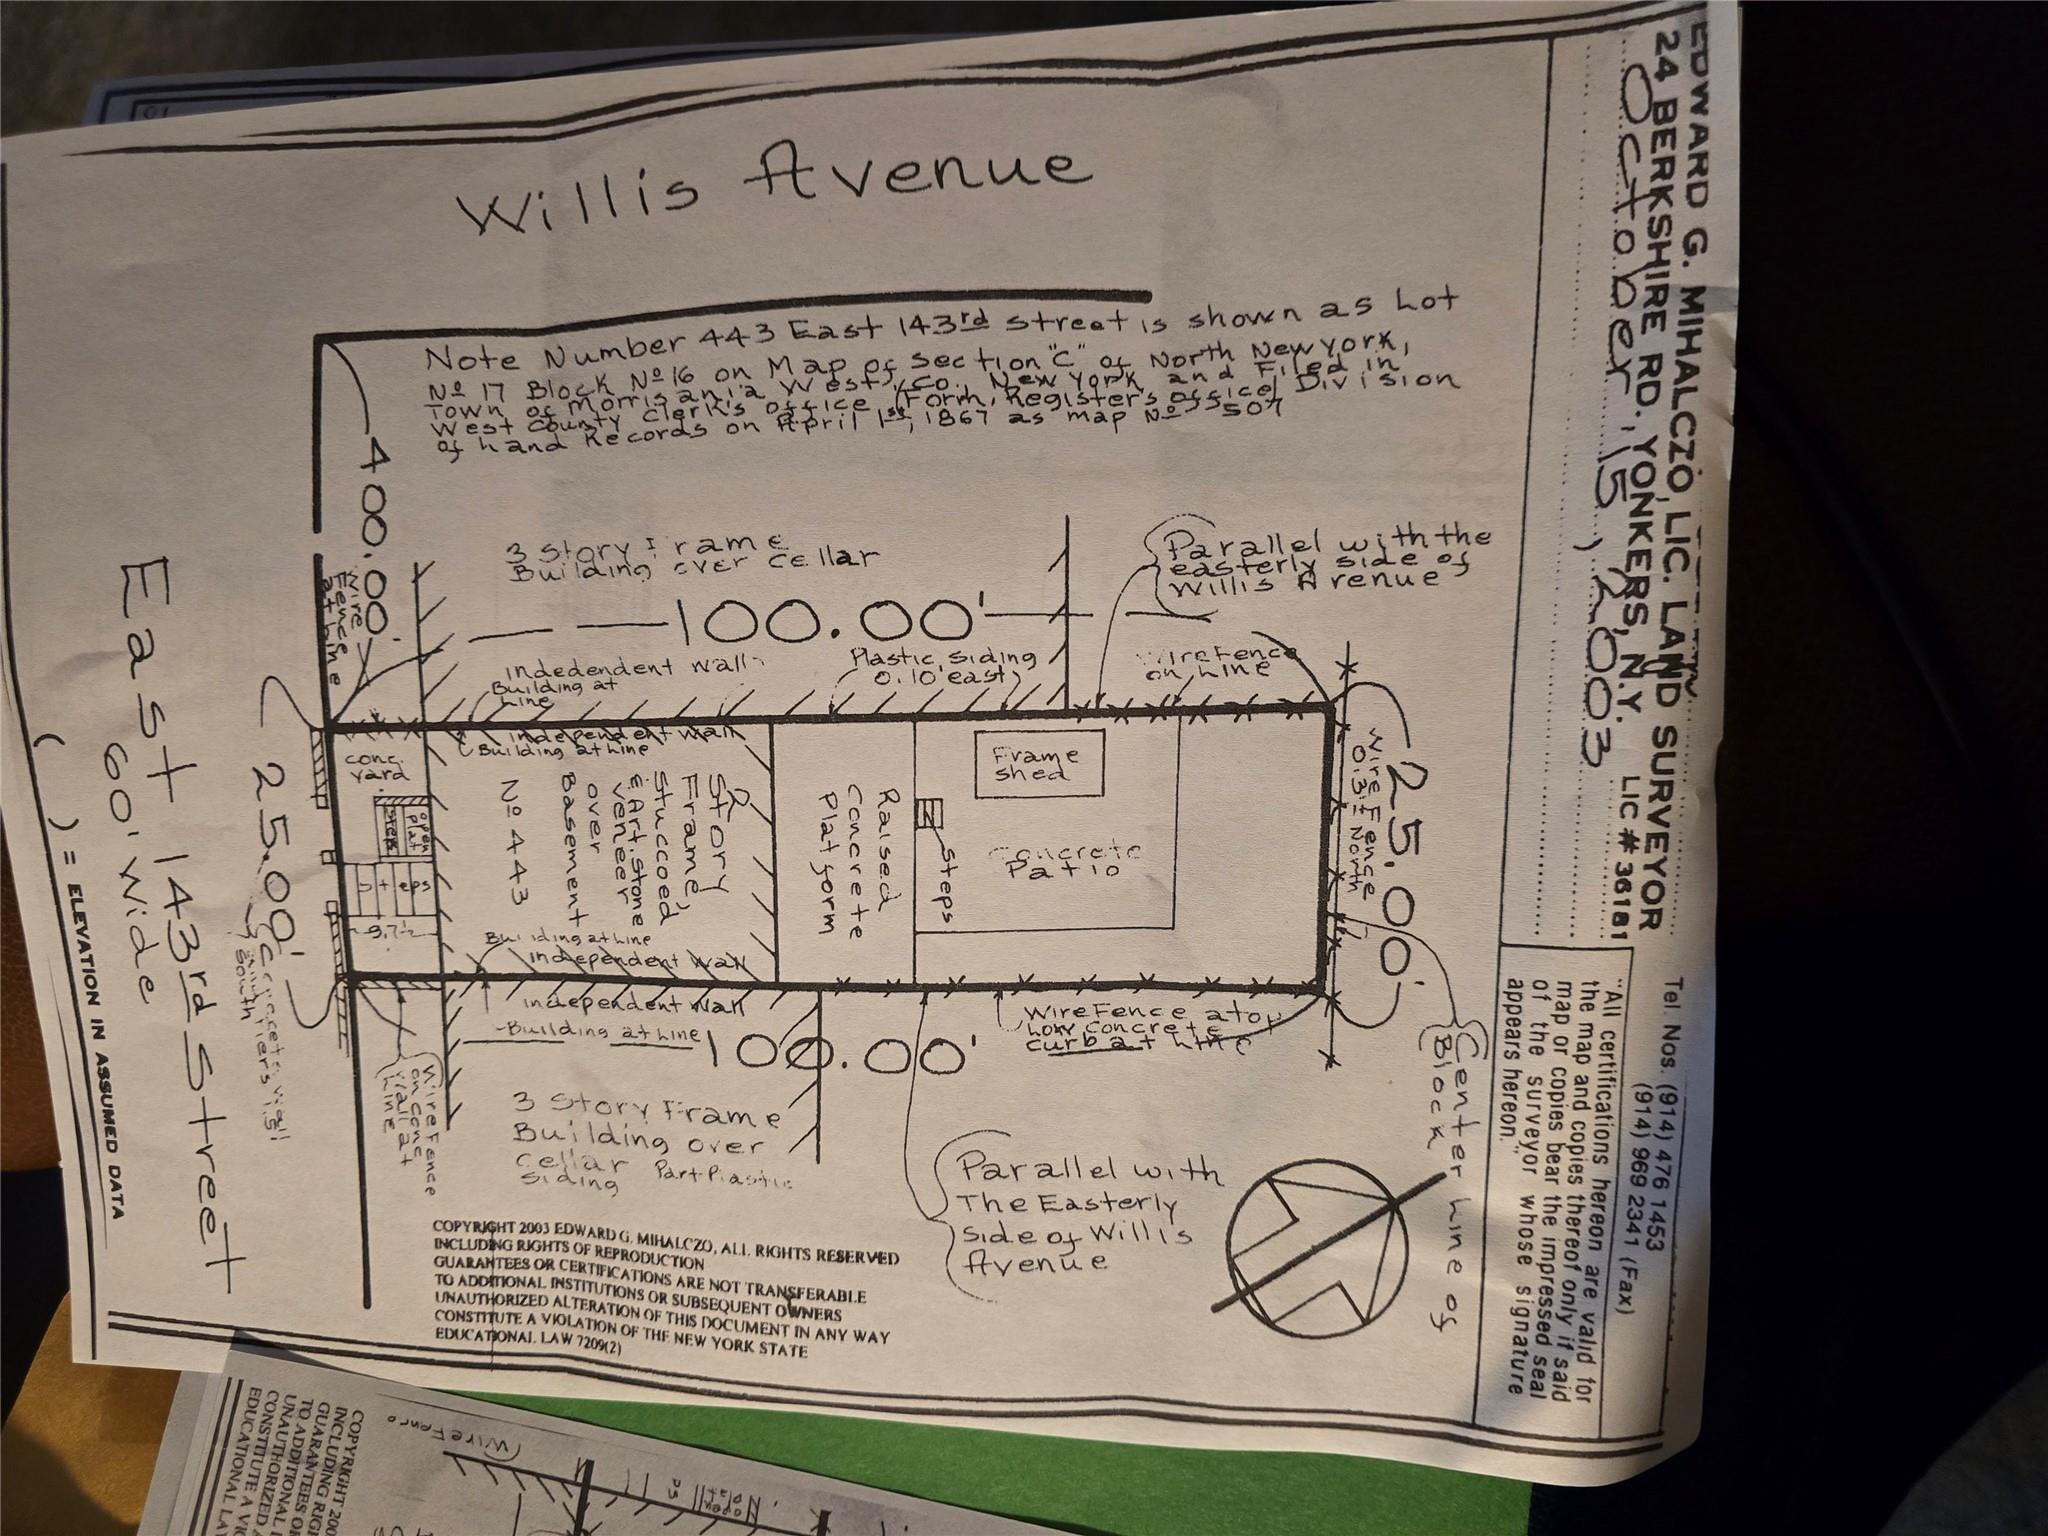 Willis Avenue
Note Number 443 East 143rd Street is shown as Lot
No 17 Block No 16 on Map of Section "C" of North New York,
Town of Morrisania West, Co., New York and Filed in
West County Clerk's office (Form, Register's office) Division
of Land Records on April 1st, 1867 as map No 507
400.00'
Wire
Fence
at Line
3 Story Frame
Building over Cellar
100.00'
Parallel with the
easterly side of
Willis Avenue
Indedendent Wall
Building at
Line
Plastic siding
0.10 east
Wire Fence
on Line
Independent Wall
Building at Line
conc.
yard
open
plat
steps
steps
9.7½
No 443
2
Story
Frame,
Stuccoed
& Art. Stone
Veneer
over
Basement
Raised
Concrete
Platform
steps
Frame
shed
Concrete
Patio
Wire Fence
0.3± North
25.00'
25.00'
Concrete Wall
South
Building at Line
Independent Wall
Independent Wall
Building at Line
100.00'
Wire Fence atop
Low Concrete
curb at Line
Wire Fence
on conc
Wall at
Line
3 Story Frame
Building over
Cellar Part Plastic
Siding
Parallel with
The Easterly
side of Willis
Avenue
Center Line of
Block
East 143rd Street
60' Wide
( ) = ELEVATION IN ASSUMED DATA
COPYRIGHT 2003 EDWARD G. MIHALCZO, ALL RIGHTS RESERVED
INCLUDING RIGHTS OF REPRODUCTION
GUARANTEES OR CERTIFICATIONS ARE NOT TRANSFERABLE
TO ADDITIONAL INSTITUTIONS OR SUBSEQUENT OWNERS
UNAUTHORIZED ALTERATION OF THIS DOCUMENT IN ANY WAY
CONSTITUTE A VIOLATION OF THE NEW YORK STATE
EDUCATIONAL LAW 7209(2)
EDWARD G. MIHALCZO, LIC. LAND SURVEYOR
24 BERKSHIRE RD. YONKERS, N.Y. LIC # 36181
October 15, 2003
Tel. Nos. (914) 476 1453
(914) 969 2341 (Fax)
"All certifications hereon are valid for
the map and copies thereof only if said
map or copies bear the impressed seal
of the surveyor whose signature
appears hereon."
(Wire Fence
open
plat
COPYRIGHT 200
INCLUDING RIGH
GUARANTEES OR
TO ADDITIONAL I
UNAUTHORIZED
CONSTITUTE A VIO
EDUCATIONAL LA